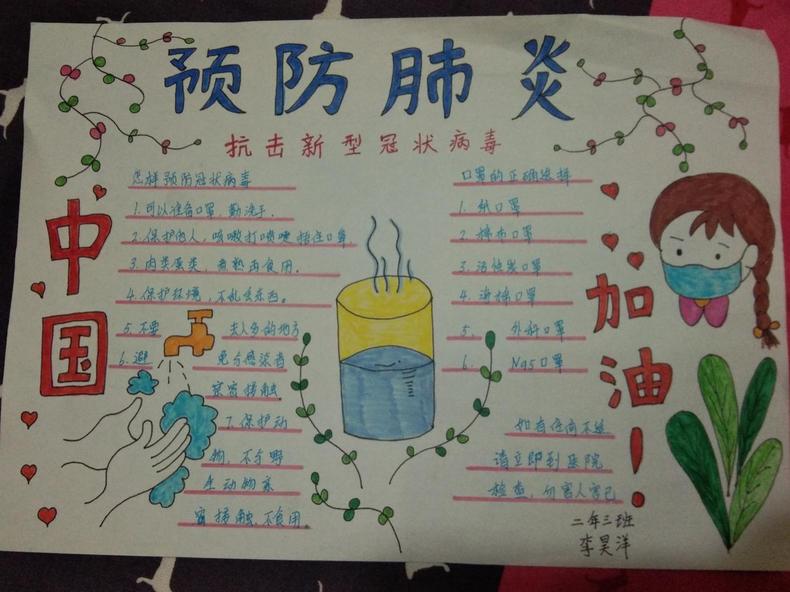 预防肺炎
抗击新型冠状病毒
中国
加油！
怎样预防冠状病毒
1.可以准备口罩，勤洗手.
2.保护内人，咳嗽打喷嚏捂住口罩
3.肉类蛋类，煮熟再食用。
4.保护环境，不乱丢东西。
5.不要 去人多的地方
6.避 免与感染者
亲密接触
7.保护动
物，不与野
生动物亲
密接触，不食用.
口罩的正确选择
1.纸口罩
2.棉布口罩
3.活性炭口罩
4.海绵口罩
5. 外科口罩
6. N95口罩
如有任何不适
请立即到医院
检查，勿害人害己
二年三班
李昊洋